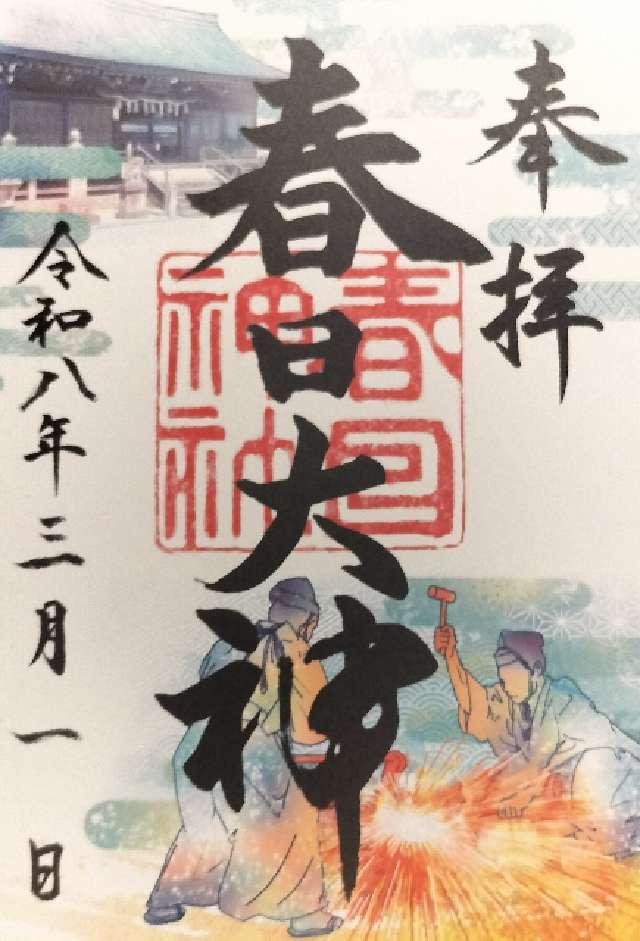 奉拝
春日大神
春日神神社
令和八年三月一日